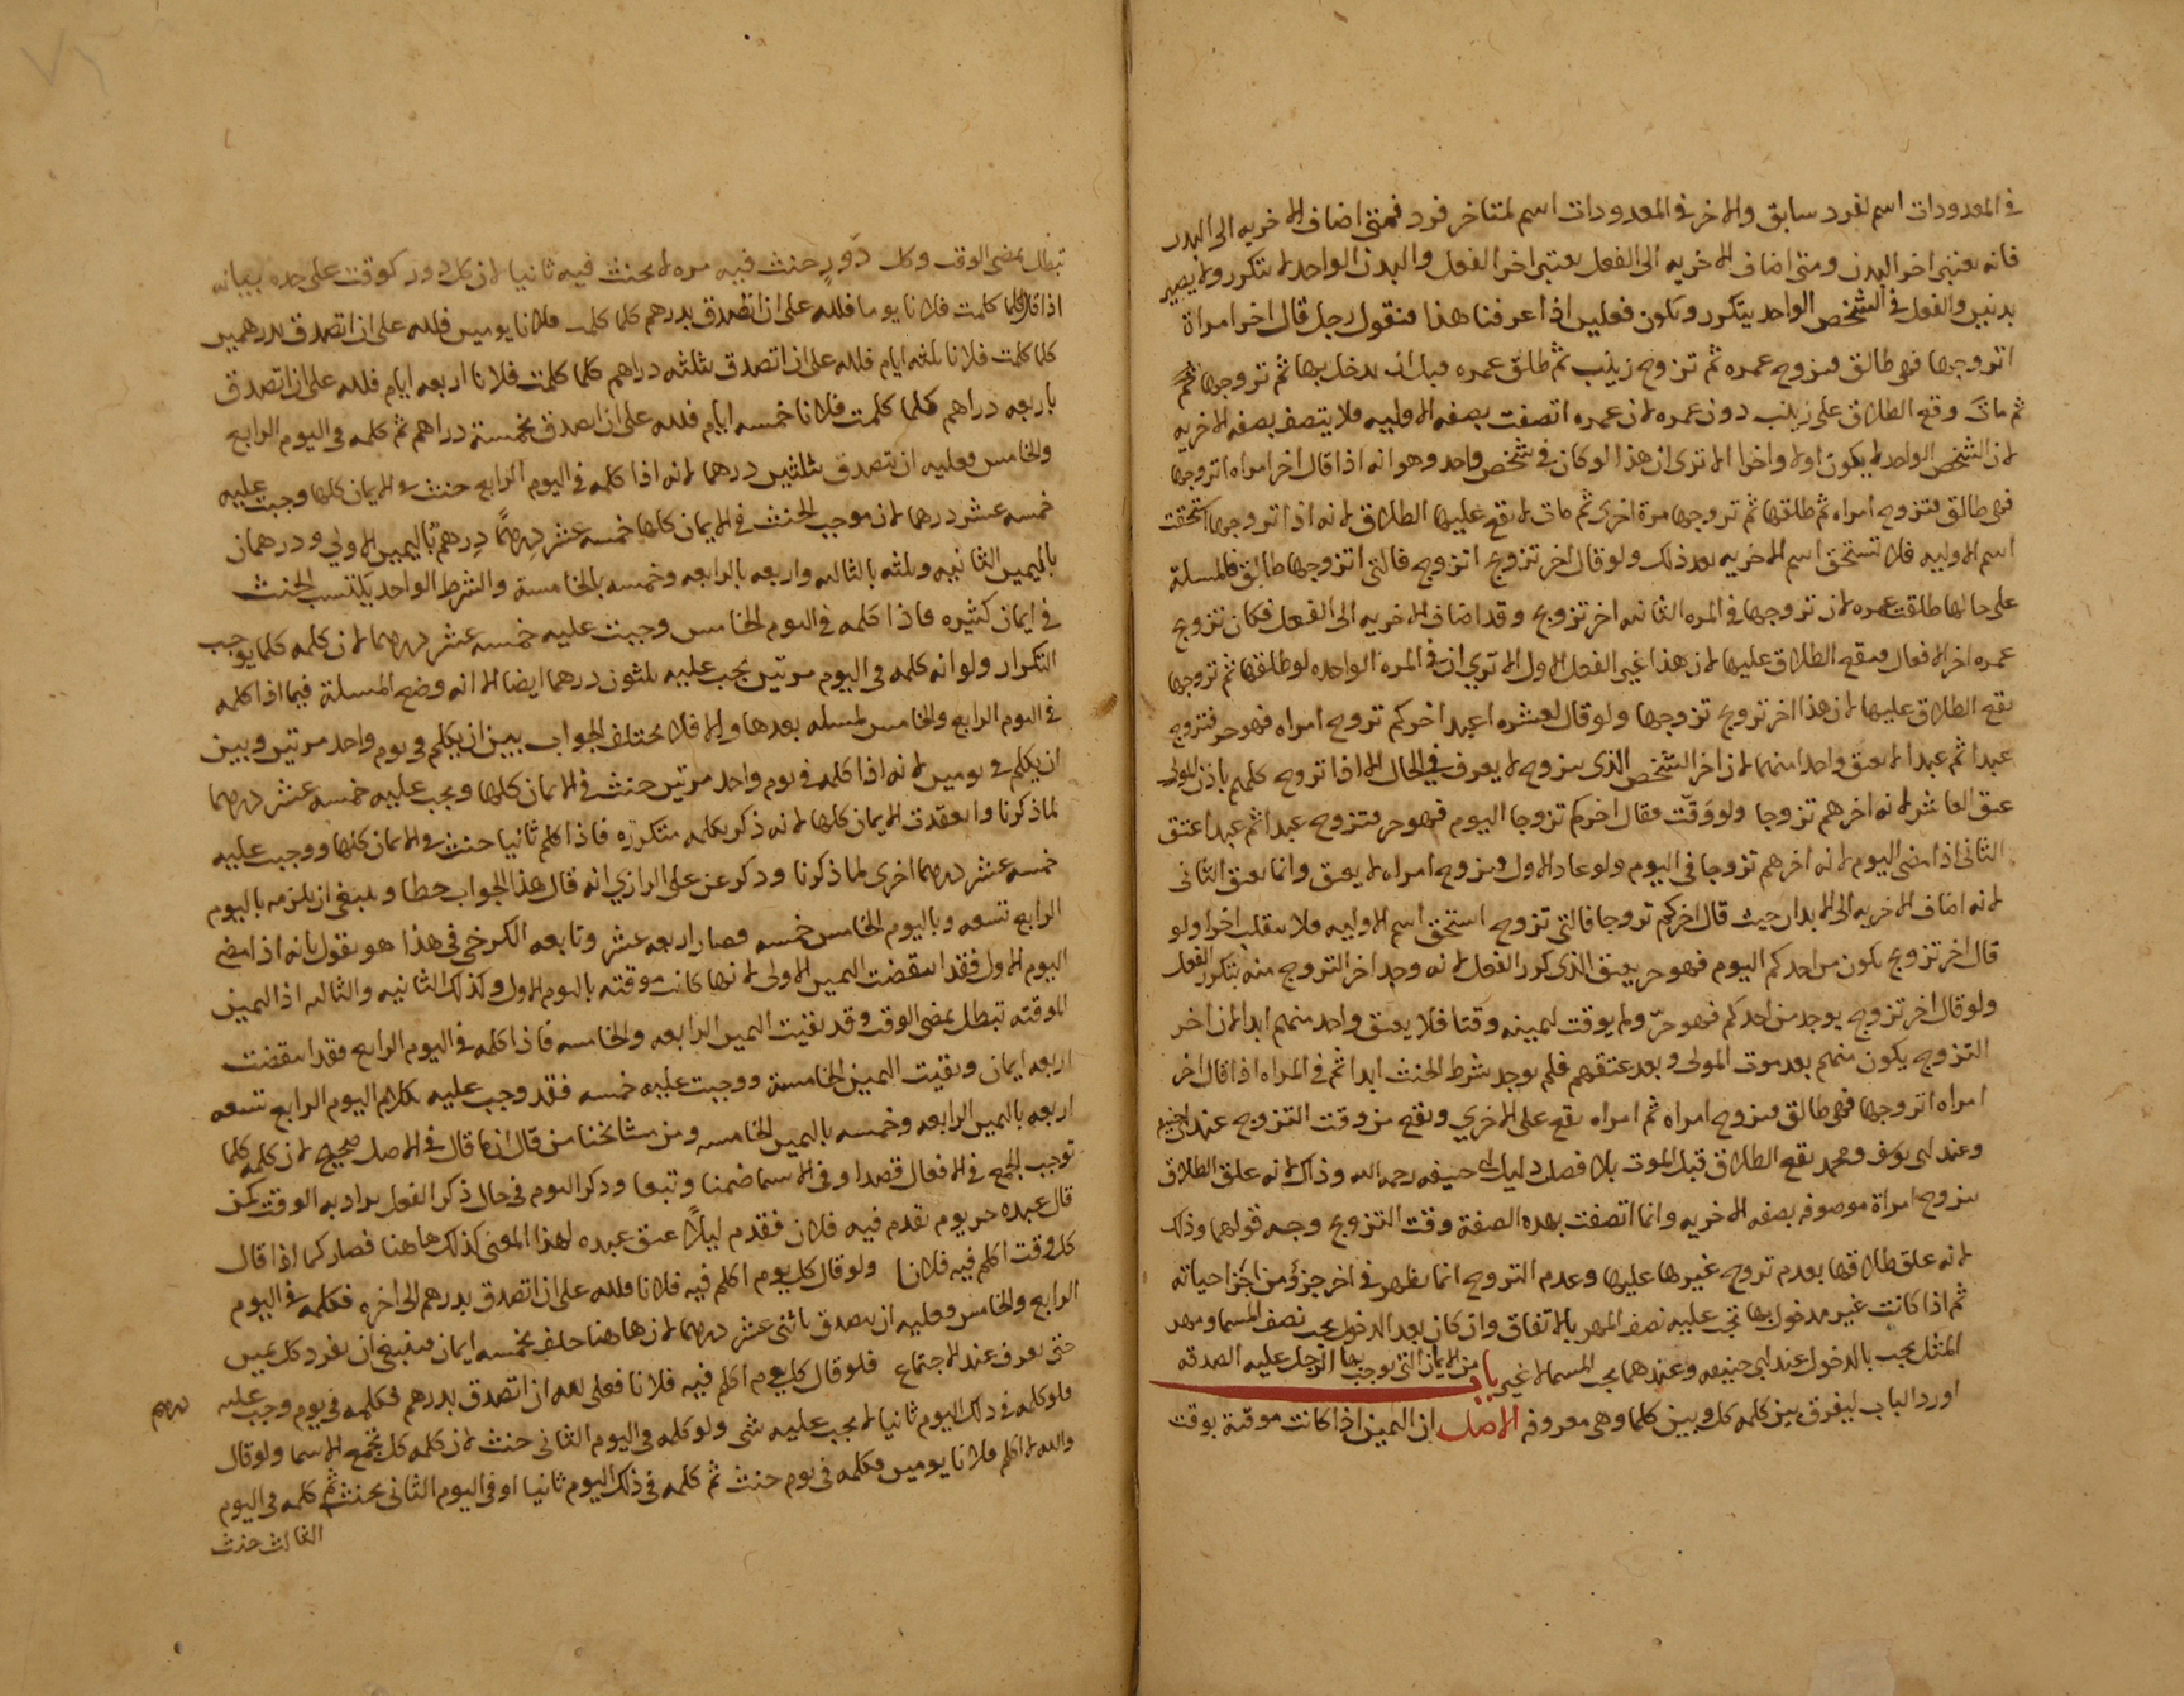 في المعدودات اسم لفرد سابق والاخر في المعدودات اسم لمتاخر فرد فمتى اضاف الاخريه الى البدن
فانه يعتبر اخر البدن ومتى اضاف الاخريه الى الفعل يعتبر اخر الفعل والبدن الواحد لا يتكرر ولا يصير
بدنين والفعل في الشخص الواحد يتكرر ويكون فعلين اذا عرفنا هذا فنقول رجل قال اخر امراة
اتزوجها فهي طالق فتزوج عمره ثم تزوج زينب ثم طلق عمره قبل ان يدخل بها ثم تزوجها
ثم مات وقع الطلاق على زينب دون عمره لان عمره اتصفت بصفه الاوليه فلا يتصف بصفه الاخريه
لان الشخص الواحد لا يكون اولا واخرا الا ترى ان هذا لو كان في شخص واحد وهو انه اذا قال اخر امراه اتزوجها
فهي طالق فتزوج امراه ثم طلقها ثم تزوجها مرة اخرى ثم مات لا يقع عليها الطلاق لانه اذا تزوجها استحقت
اسم الاوليه فلا تستحق اسم الاخريه بعد ذلك ولو قال اخر تزوج اتزوج فالتي اتزوجها طالق فالمسلة
على حالها طلقت عمره لان تزوجها في المره الثانيه اخر تزوج وقد اضاف الاخريه الى الفعل فكان تزوج
عمره اخر الافعال فيقع الطلاق عليها لان هذا غير الفعل الاول الا تري ان في المرة الواحده لو طلقها ثم تزوجها
يقع الطلاق عليها لان هذا اخر تزوج تزوجها ولو قال لعشره اعبد اخركم تزوج امراه فهو حر فتزوج
عبدا ثم عبدا لا يعتق واحد منهما لان اخر الشخص الذى يتزوج لا يعرف في الحال الا اذا تزوج كلهم باذن المولى
عتق العاشر لانه اخرهم تزوجا ولو وقّت فقال اخركم تزوجا اليوم فهو حر فتزوج عبدا ثم عبدا عتق
الثاني اذا مضى اليوم لانه اخرهم تزوجا في اليوم ولو عاد الاول وتزوج امراه لا يعتق وانما يعتق الثانى
لانه اضاف الاخريه الى الابدان حيث قال اخركم تزوجا فالتي تزوج استحق اسم الاوليه فلا ينقلب اخرا ولو
قال اخر تزوج يكون من احدكم اليوم فهو حر يعتق الذى كرر الفعل لانه وجد اخر التزوج منه بتكرر الفعل
ولو قال اخر تزوج يوجد من احدكم فهو حرّ ولم يوقت ليمينه وقتا فلا يعتق واحد منهم ابدا لان اخر
التزوج يكون منهم بعد موت المولى وبعد عتقهم فلم يوجد شرط الحنث ابدا ثم في المراه اذا قال اخر
امراه اتزوجها فهي طالق فتزوج امراة ثم امراه يقع على الاخري ويقع من وقت التزوج عند ابي حنيفه
وعند ابي يوسف ومحمد يقع الطلاق قبل الموت بلا فصل دليل ابى حنيفه رحمه الله وذاك لانه علق الطلاق
بتزوج امراة موصوفه بصفه الاخريه وانما اتصفت بهده الصفة وقت التزوج وجه قولهما وذاك
لانه علق طلاقها بعدم تزوج غيرها عليها وعدم التزوج انما يظهر في اخر جزؤ من اجزا حياته
ثم اذا كانت غير مدخول بها تجب عليه نصف المهر بالاتفاق وان كان بعد الدخول يجب نصف المسما ومهر
المثل يجب بالدخول عند ابي حنيفه وعندهما يجب المسما لا غير باب من الايمان التي يوجب بها الرجل عليه الصدقه
اورد الباب ليفرق بين كلمه كل وبين كلما وهى معروفه الاصل ان اليمين اذا كانت موقتة بوقت
تبطل بمضي الوقت وكل دَورٍ حنث فيه مره لا يحنث فيه ثانيا لان كل دور كوقت على حده بيانه
اذا قال كلما كلمت فلانا يوما فلله على ان اتصدق بدرهم كلما كلمت فلانا يومين فلله على ان اتصدق بدرهمين
كلما كلمت فلانا ثلثه ايام فلله على ان اتصدق بثلثه دراهم كلما كلمت فلانا اربعه ايام فلله على ان اتصدق
باربعه دراهم كلما كلمت فلانا خمسه ايام فلله على ان اتصدق بخمسة دراهم ثم كلمه في اليوم الرابع
والخامس فعليه ان يتصدق بثلثين درهما لانه اذا كلمه في اليوم الرابع حنث في الايمان كلها وجبت عليه
خمسه عشر درهما لان موجب الحنث في الايمان كلها خمسه عشر درهمًا درهم باليمين الاولي ودرهمان
باليمين الثانيه وثلثه بالثالثه واربعه بالرابعه وخمسه بالخامسة والشرط الواحد يكتسب الحنث
في ايمان كثيره فاذا كلمه في اليوم الخامس وجبت عليه خمسه عشر درهما لان كلمه كلما يوجب
التكرار ولو انه كلمه في اليوم مرتين يجب عليه ثلثون درهما ايضا الا انه وضع المسلة فيما اذا كلمه
في اليوم الرابع والخامس لمسله بعدها والا فلا يختلف الجواب بين ان يكلم في يوم واحد مرتين وبين
ان يكلم في يومين لانه اذا كلمه في يوم واحد مرتين حنث في الايمان كلها ويجب عليه خمسه عشر درهما
لما ذكرنا وانعقدت الايمان كلها لانه ذكر بكلمه متكرره فاذا كلم ثانيا حنث في الايمان كلها ووجبت عليه
خمسه عشر درهما اخرى لما ذكرنا وذكر عن على الرازي انه قال هذا الجواب خطا وينبغي ان يلزمه باليوم
الرابع تسعه وباليوم الخامس خمسه فصار اربعه عشر وتابعه الكرخي في هذا هو يقول بانه اذا مضى
اليوم الاول فقد انقضت اليمين الاولى لانها كانت موقته باليوم الاول وكذلك الثانيه والثالثه اذ اليمين
الموقته تبطل بمضى الوقت وقد بقيت اليمين الرابعه والخامسه فاذا كلمه في اليوم الرابع فقد انقضت
اربعه ايمان وبقيت اليمين الخامسة ووجبت عليه خمسه فقد وجب عليه بكلام اليوم الرابع تسعه
اربعه باليمين الرابعه وخمسه باليمين الخامسه ومن مشائخنا من قال ان ما قال في الاصل صحيح لان كلمه كلما
توجب الجمع في الافعال قصدا وفي الاسما ضمنا وتبعا وذكر اليوم في حال ذكر الفعل يراد به الوقت كمن
قال عبده حر يوم يقدم فيه فلان فقدم ليلاً عتق عبده لهذا المعنى كذلك هاهنا فصار كما اذا قال
كل وقت اكلم فيه فلانا ولو قال كل يوم اكلم فيه فلانا فلله على ان اتصدق بدرهم الى اخره فكلمه في اليوم
الرابع والخامس فعليه ان يتصدق باثنى عشر درهما لان هاهنا حلف بخمسه ايمان فينبغي ان يفرد كل يمين
حتى يعرف عند الاجتماع فلو قال كل يوم اكلم فيه فلانا فعلى لله ان اتصدق بدرهم فكلمه في يوم وجب عليه درهم
فلو كلمه في ذلك اليوم ثانيا لا يجب عليه شى ولو كلمه في اليوم الثاني حنث لان كلمه كل تجمع الاسما ولو قال
والله لا اكلم فلانا يومين فكلمه في يوم حنث ثم كلمه في ذلك اليوم ثانيا او في اليوم الثاني يحنث ثم كلمه في اليوم
الثالث حنث